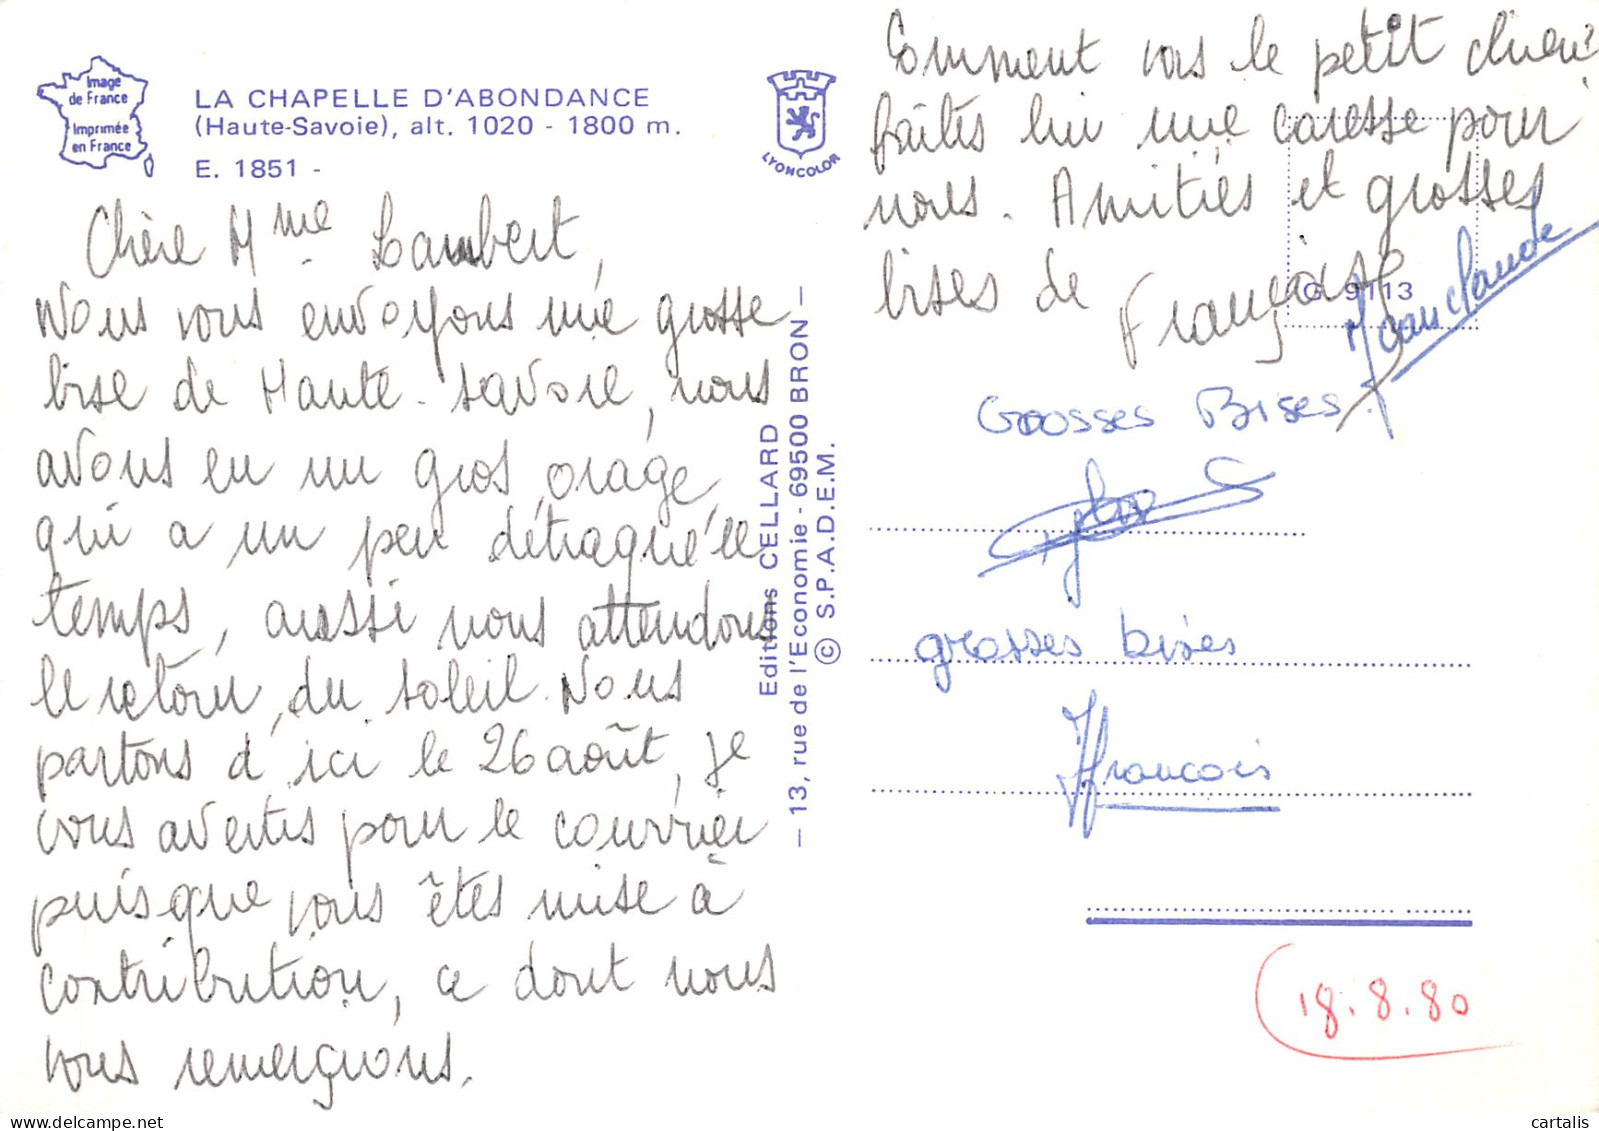 Image
de France
Imprimée
en France
LA CHAPELLE D'ABONDANCE
(Haute-Savoie), alt. 1020 - 1800 m.
E. 1851 -
LYONCOLOR
Chère Mme Lambert,
Nous vous envoyons une grosse
bise de Haute-Savoie, nous
avons eu un gros orage,
qui a un peu détraqué le
temps, aussi nous attendons
le retour du soleil. Nous
partons d'ici le 26 août, je
vous avertis pour le courrier
puisque vous êtes mise à
contribution, ce dont nous
vous remercions.
Editions CELLARD
— 13, rue de l'Economie - 69500 BRON —
© S.P.A.D.E.M.
Comment vas le petit chien?
faites lui une caresse pour
nous. Amitiés et grosses
bises de Françoise
G 9113
Jean claude
Grosses Bises.
grosses bises
francois
18.8.80
cartalis